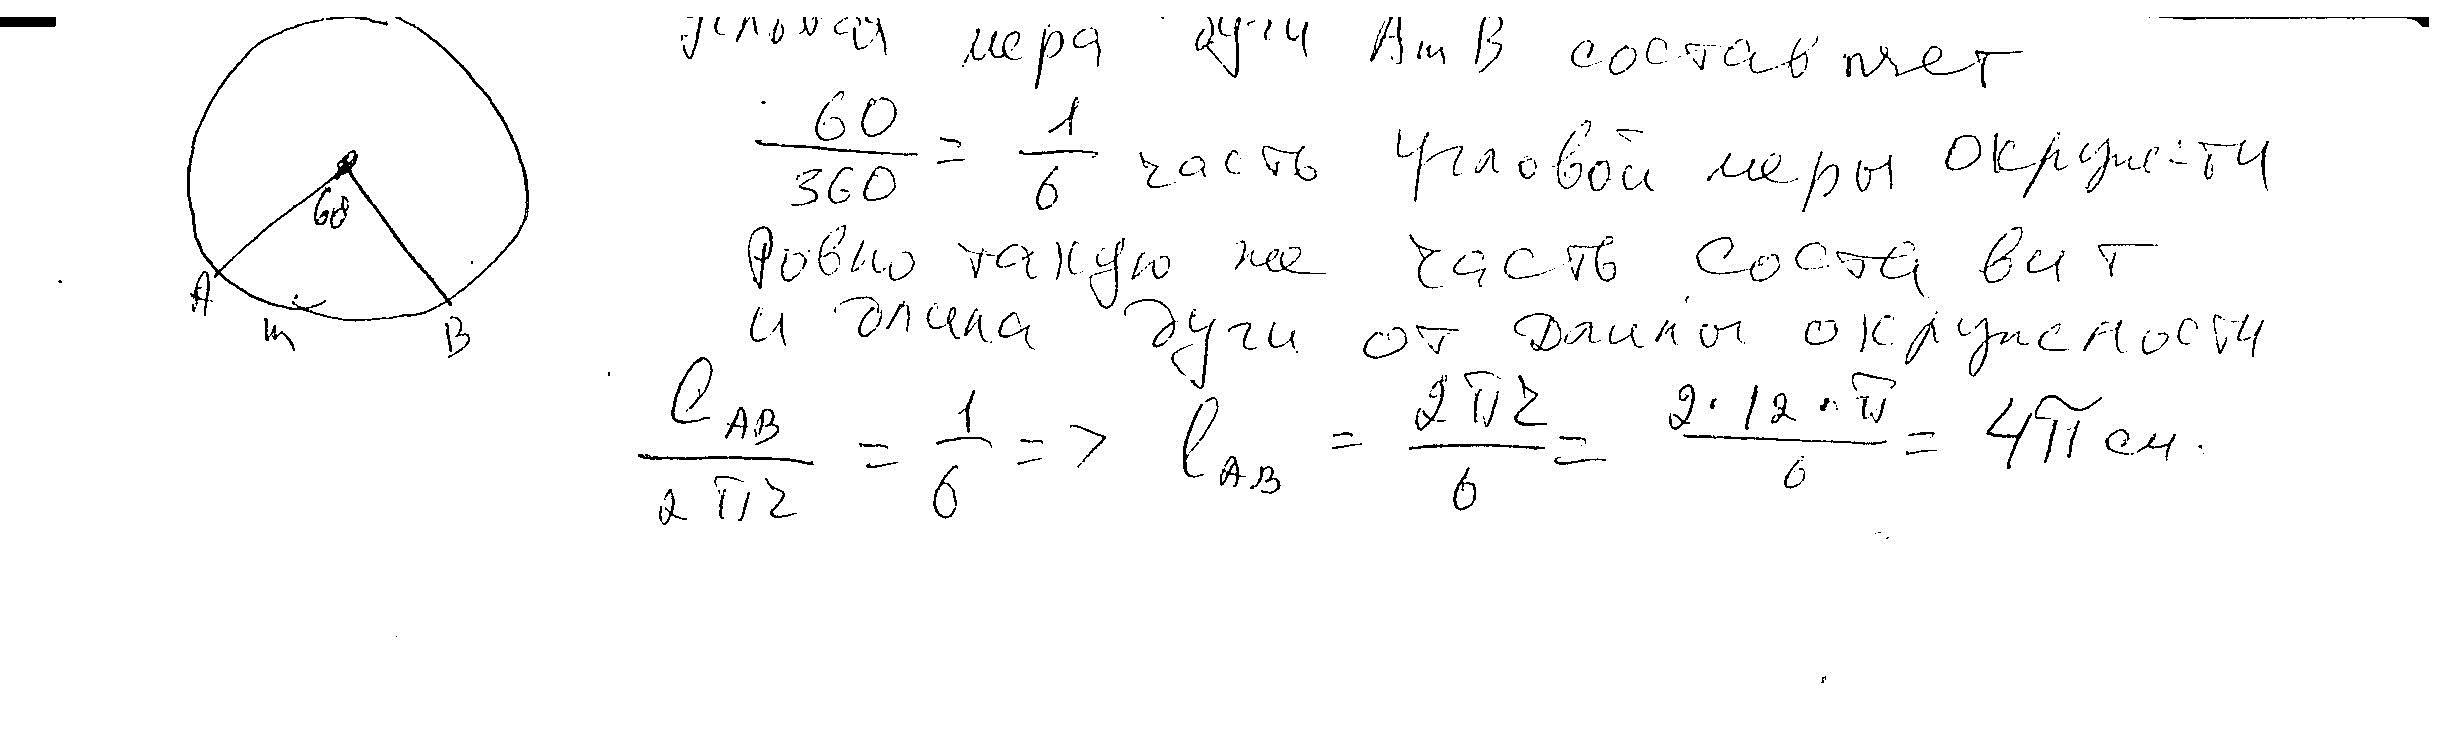 угловая мера дуги AmB составляет
60/360 = 1/6 часть угловой меры окружности
Ровно такую же часть составит
и длина дуги от длины окружности
ℓ_AB/2πr = 1/6 => ℓ_AB = 2πr/6 = 2·12·π/6 = 4π см.
60°
A
m
B